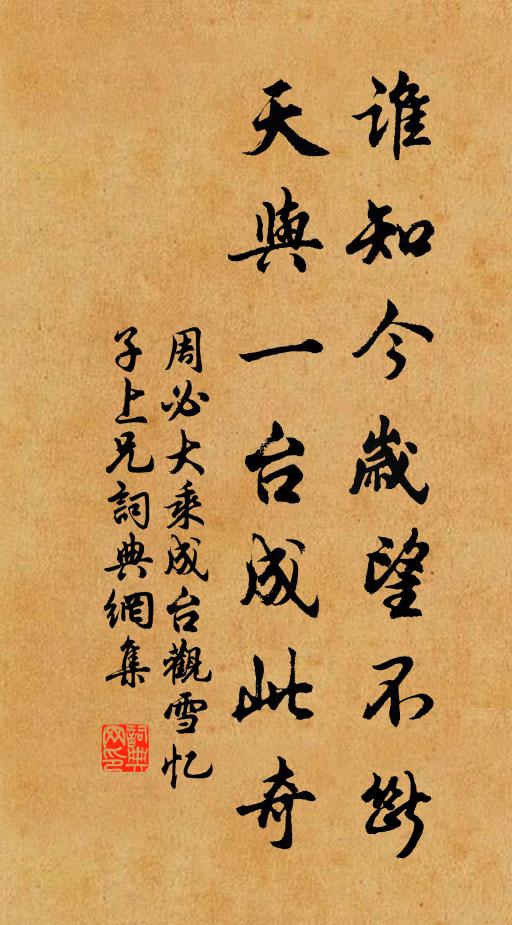 誰知今歲望不斷
天與一台成此奇
周必大乘成台觀雪忆
子上兄詞典網集
詞典网印